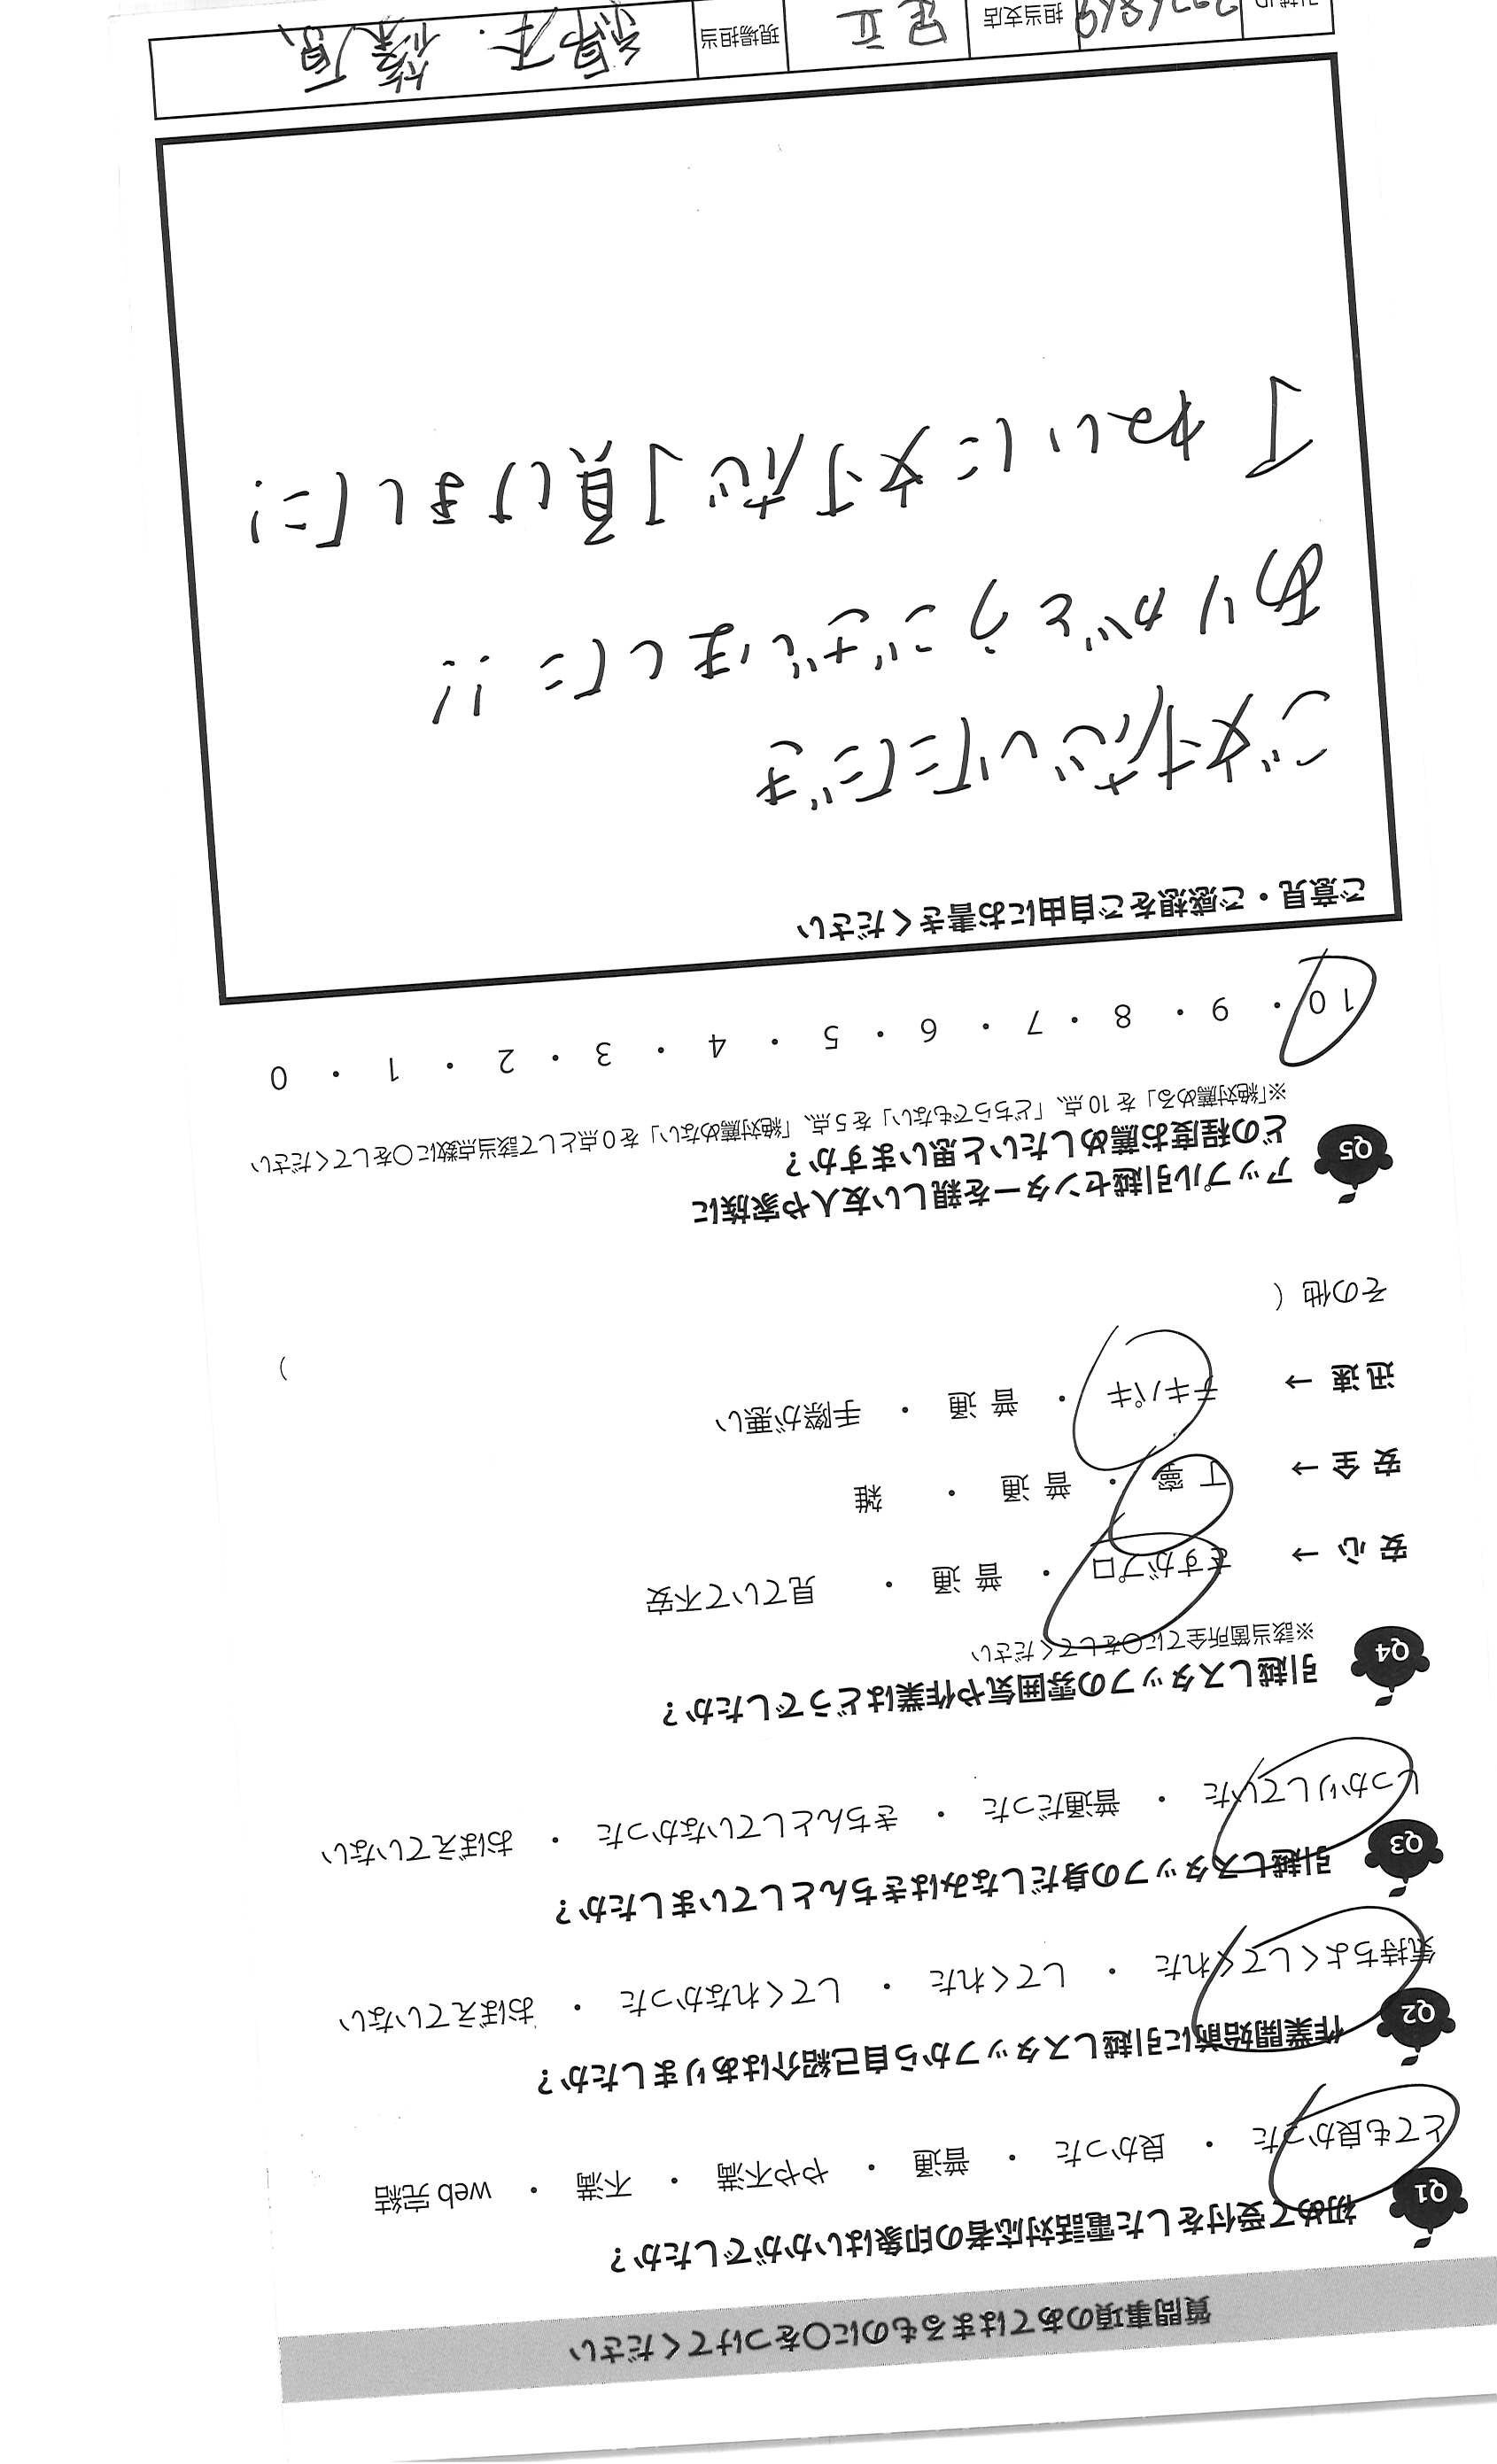 質問事項のあてはまるものに〇をつけてください
Q1 初めて受付をした電話対応者の印象はいかがでしたか？
とても良かった ・ 良かった ・ 普通 ・ やや不満 ・ 不満 ・ web 完結
Q2 作業開始前に引越しスタッフから自己紹介はありましたか？
気持ちよくしてくれた ・ してくれた ・ してくれなかった ・ おぼえていない
Q3 引越しスタッフの身だしなみはきちんとしていましたか？
しっかりしていた ・ 普通だった ・ きちんとしていなかった ・ おぼえていない
Q4 引越しスタッフの雰囲気や作業はどうでしたか？
※該当箇所全てに〇をしてください
安 心 → さすがプロ ・ 普 通 ・ 見ていて不安
安 全 → 丁 寧 ・ 普 通 ・ 雑
迅 速 → テキパキ ・ 普 通 ・ 手際が悪い
その他（ ）
Q5 アップル引越センターを親しい友人や家族に
どの程度お薦めしたいと思いますか？
※「絶対薦める」を 10 点、「どちらでもない」を 5 点、「絶対薦めない」を 0 点として該当点数に〇をしてください
10 ・ 9 ・ 8 ・ 7 ・ 6 ・ 5 ・ 4 ・ 3 ・ 2 ・ 1 ・ 0
ご意見・ご感想をご自由にお書きください
ご対応いただき
ありがとうございました!!
丁ねいに対応頂けました!
担当支店 足立 現場担当